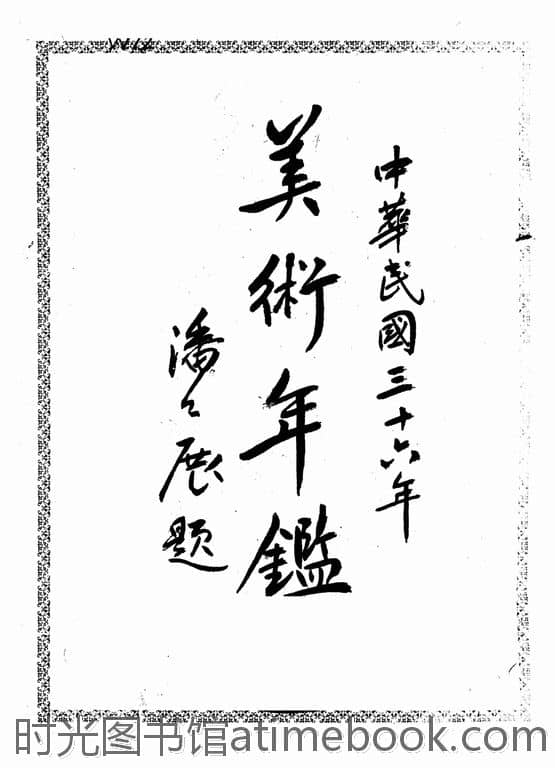 中華民國三十六年
美術年鑑
潘公展題
时光图书馆atimebook.com